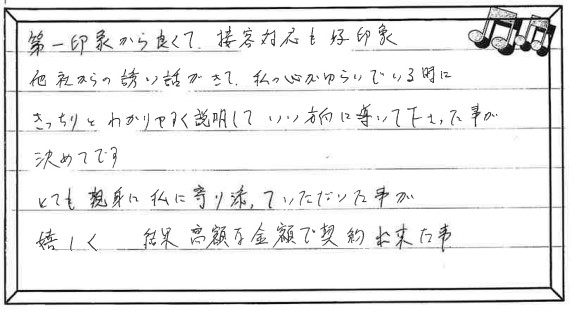 第一印象から良くて、接客対応も好印象
他社からの誘い話がきて、私の心がゆらいでいる時に
きっちりとわかりやすく説明していい方向に導いて下さった事が
決めてです
とても親身に私に寄り添っていただいた事が
嬉しく 結果高額な金額で契約出来た事